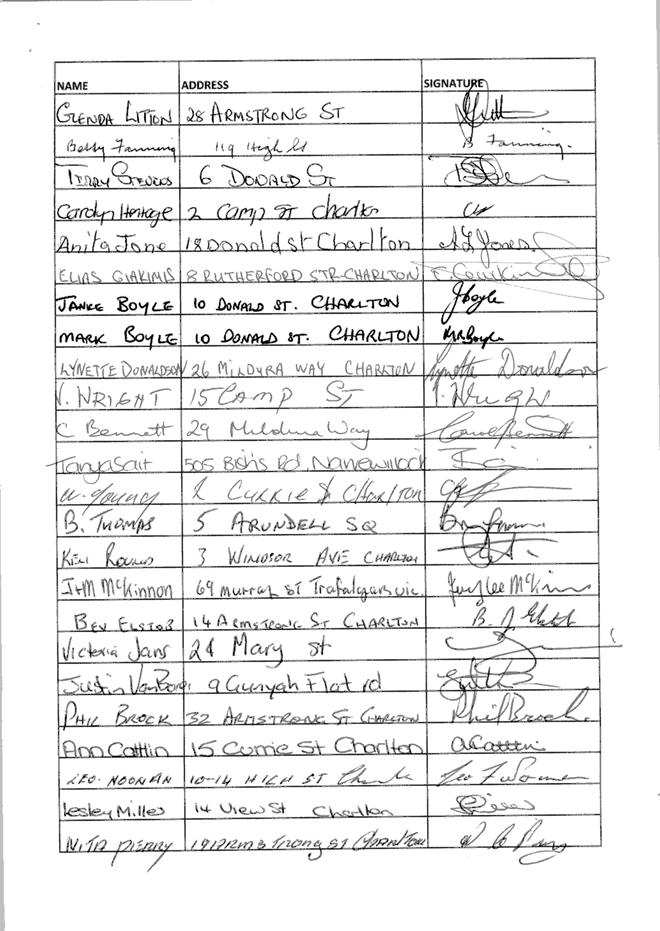 NAME ADDRESS SIGNATURE
GLENDA LITTON 28 ARMSTRONG ST
Betty Fanning 119 High St B Fanning.
TERRY STEVENS 6 DONALD ST
Carolyn Heritage 2 Camp st charlton
Anita Jone 18 Donald st Charlton A L Jones.
ELIAS GIAKIMIS 8 RUTHERFORD STR-CHARLTON
JANICE BOYLE 10 DONALD ST. CHARLTON JBoyle
MARK BOYLE 10 DONALD ST. CHARLTON M.R.Boyle
LYNETTE DONALDSON 26 MILDURA WAY CHARLTON Lynette Donaldson
V. WRIGHT 15 CAMP ST V. Wright
C Bennett 29 Mildura Way Carol Bennett
Tanya Sait 505 Rd, Nanewillock
W. Young 2 CURRIE St CHARLTON
B. THOMAS 5 ARUNDELL SQ
3 WINDSOR AVE CHARLTON
J+M McKinnon 69 Murray ST Trafalgar vic.
BEV ELSTOB 14 ARMSTRONG ST CHARLTON
Victoria Jans 24 Mary st
Justin 9 Gunyah Flat rd
PHIL BROCK 32 ARMSTRONG ST CHARLTON Phil Brock.
Ann Cattlin 15 Currie St Charlton
LEO. NOONAN 10-14 HIGH ST
Lesley Milles 14 View St Charlton
NITA PIERRY 19 ARMSTRONG ST CHARLTON